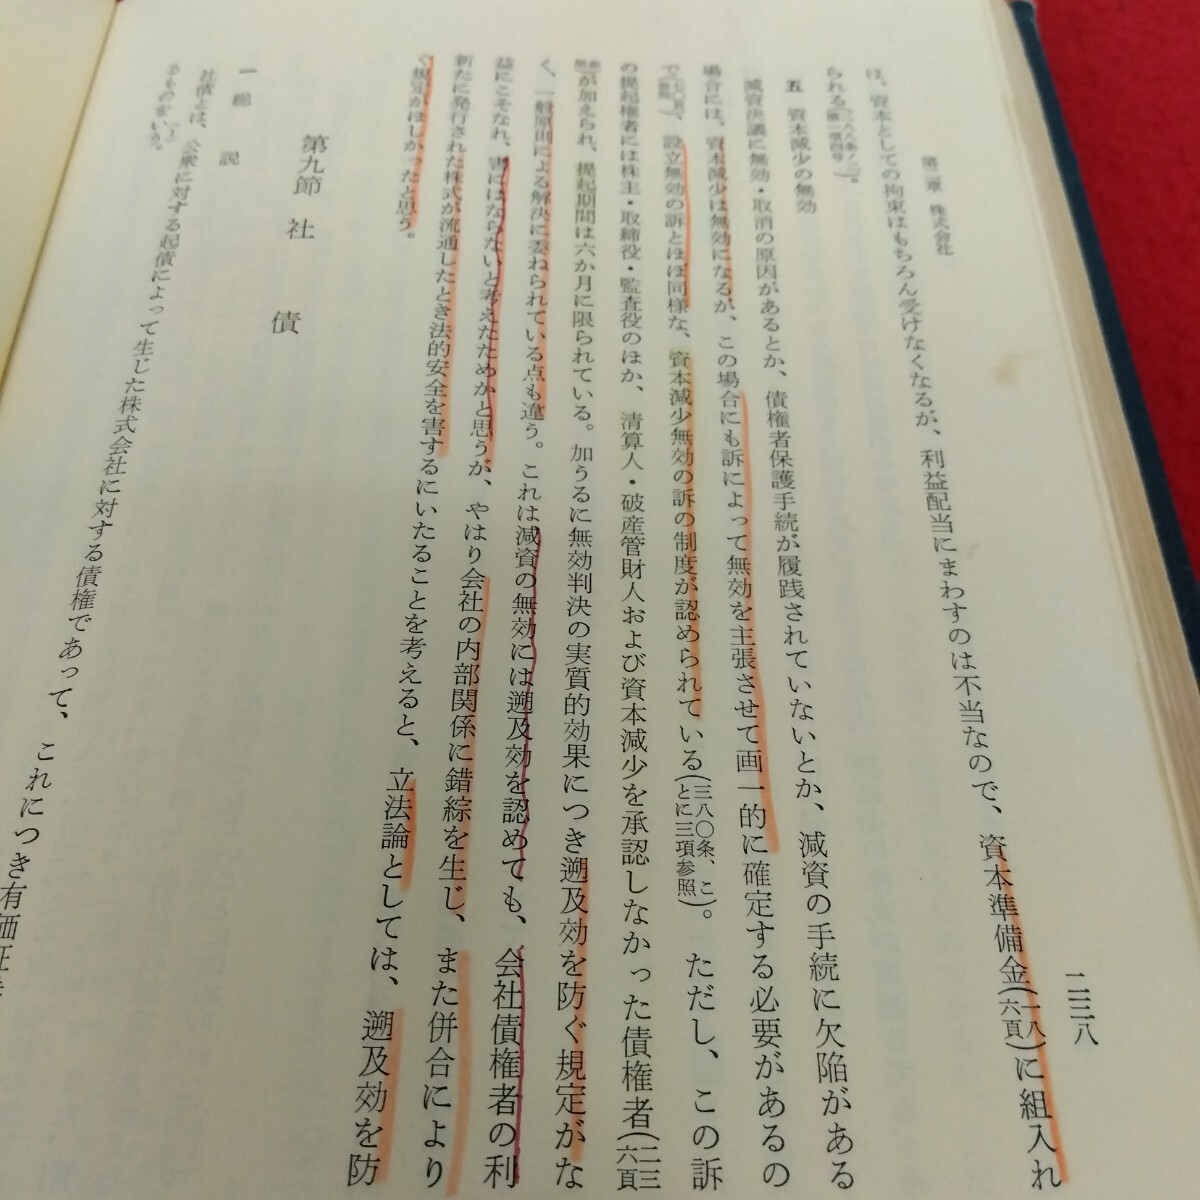 第二章 株式会社
二三八
は、資本としての拘束はもちろん受けなくなるが、利益配当にまわすのは不当なので、資本準備金(一八六頁)に組入れ
られる(二八八条ノ二第一項四号)。
五 資本減少の無効
減資決議に無効・取消の原因があるとか、債権者保護手続が履践されていないとか、減資の手続に欠陥がある
場合には、資本減少は無効になるが、この場合にも訴によって無効を主張させて画一的に確定する必要があるの
で、設立無効の訴とほぼ同様な、資本減少無効の訴の制度が認められている(三八〇条、ことに三項参照)。ただし、この訴
の提起権者には株主・取締役・監査役のほか、清算人・破産管財人および資本減少を承認しなかった債権者(二三六頁
が加えられ、提起期間は六か月に限られている。加うるに無効判決の実質的効果につき遡及効を防ぐ規定がな
く、一般原則による解決に委ねられている点も違う。これは減資の無効には遡及効を認めても、会社債権者の利
益にこそなれ、害にはならないと考えたためかと思うが、やはり会社の内部関係に錯綜を生じ、また併合により
新たに発行された株式が流通したとき法的安全を害するにいたることを考えると、立法論としては、遡及効を防
ぐ規定がほしかったと思う。
第九節 社債
一 総説
社債とは、公衆に対する起債によって生じた株式会社に対する債権であって、これにつき有価証券
るものをいう。